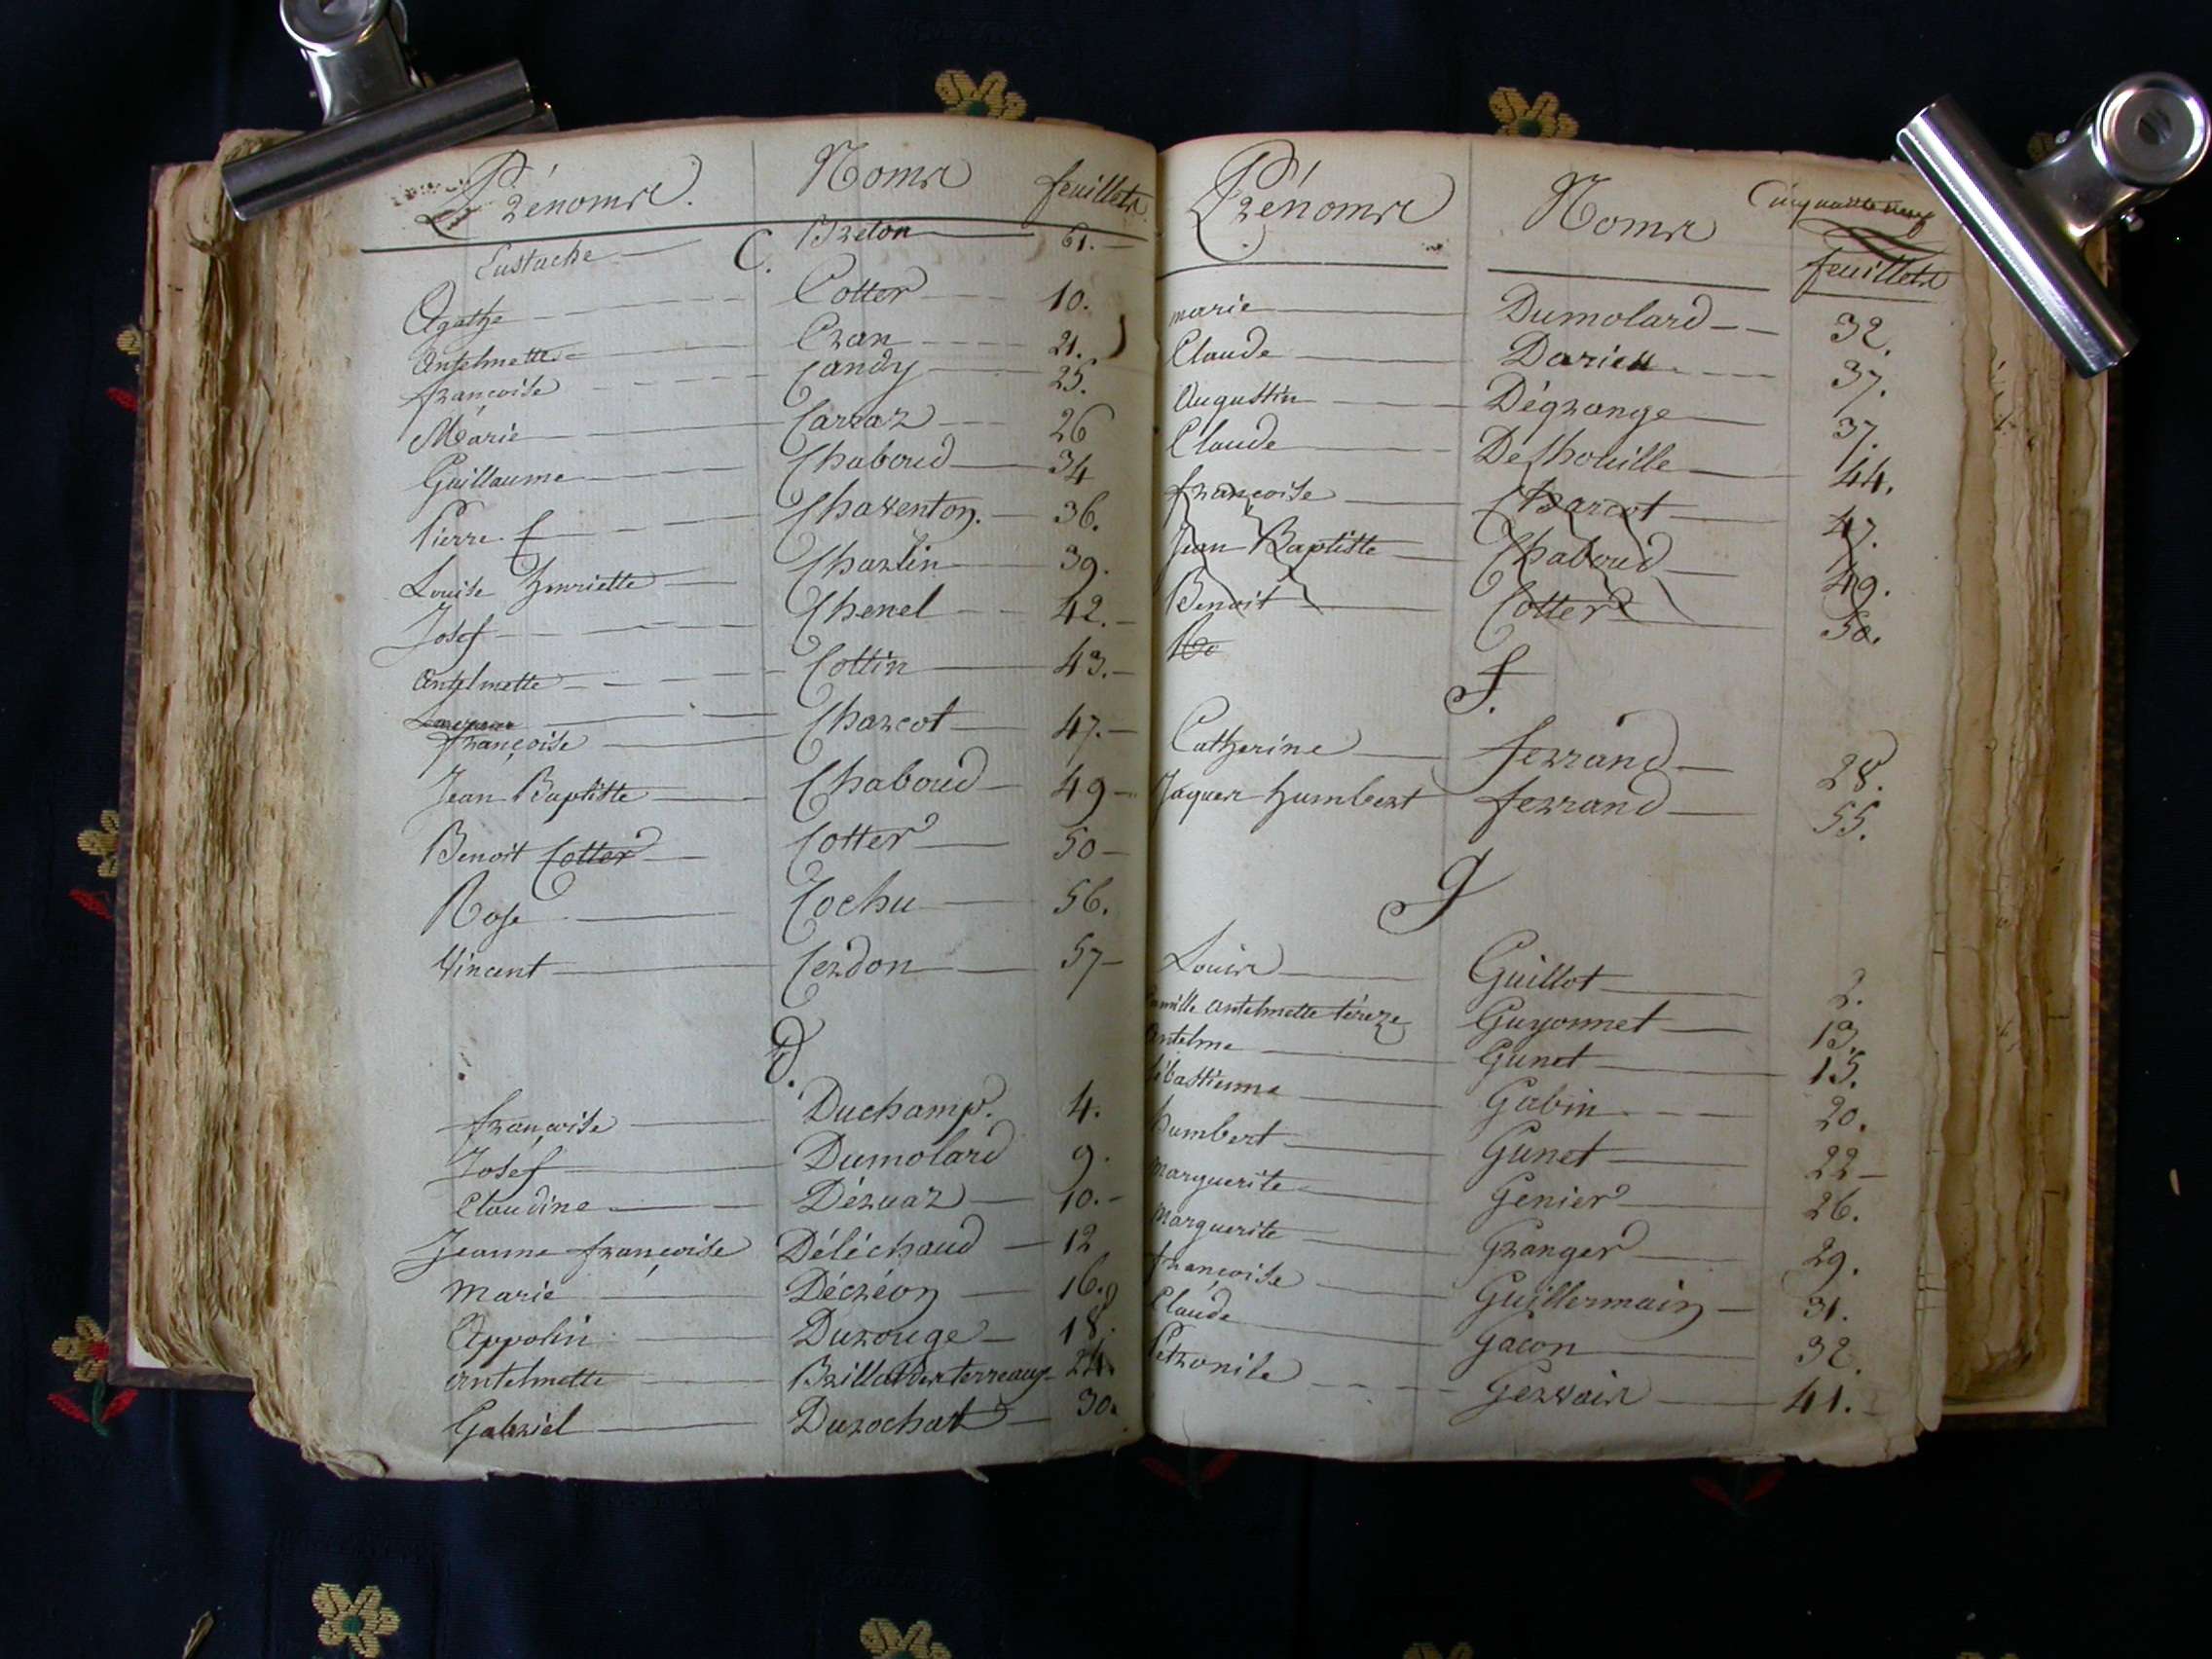 Prénoms. Noms feuillets
Eustache Breton 61.
C.
Agathe Cotter 10.
Antelmette Cran 21.
françoise Candy 25.
Marie Carraz 26
Guillaume Chaboud 34
Pierre f Charenton. 36.
Louise henriette Charlin 39.
Josef Chenel 42.
Antelmette Cottin 43.
françoise Charcot 47.
Jean Baptiste Chaboud 49
Benoit Cotter Cotter 50
Rose Cochu 56.
Vincent Cerdon 57
D.
françoise Duchamp. 4.
Josef Dumolard 9.
Claudine Déruaz 10.
Jeanne françoise Déléchaud 12
Marie Décréon 16.
Appolin Durouge 18.
Antelmette Brillat des terreaux 24.
Gabriel Durochat 30.
Cinquante neuf
Prénoms Noms feuillets
marie Dumolard 32.
Claude Darieu 37.
Augustin Dégrange 37.
Claude Deshouille 44.
françoise Charcot 47.
Jean Baptiste Chaboud 49.
Benoit Cotter 50.
Ro
f.
Catherine ferrand 28.
Jaques humbert ferrand 55.
g
Louis Guillot 2.
Camille antelmette téreze Guyonnet 13.
antelme Gunet 15.
sébastienne Gabin 20.
humbert Gunet 22
Marguerite Genier 26.
Marguerite Granger 29.
françoise Guillermain 31.
Claude Gacon 32.
Pétronile Gervais 41.